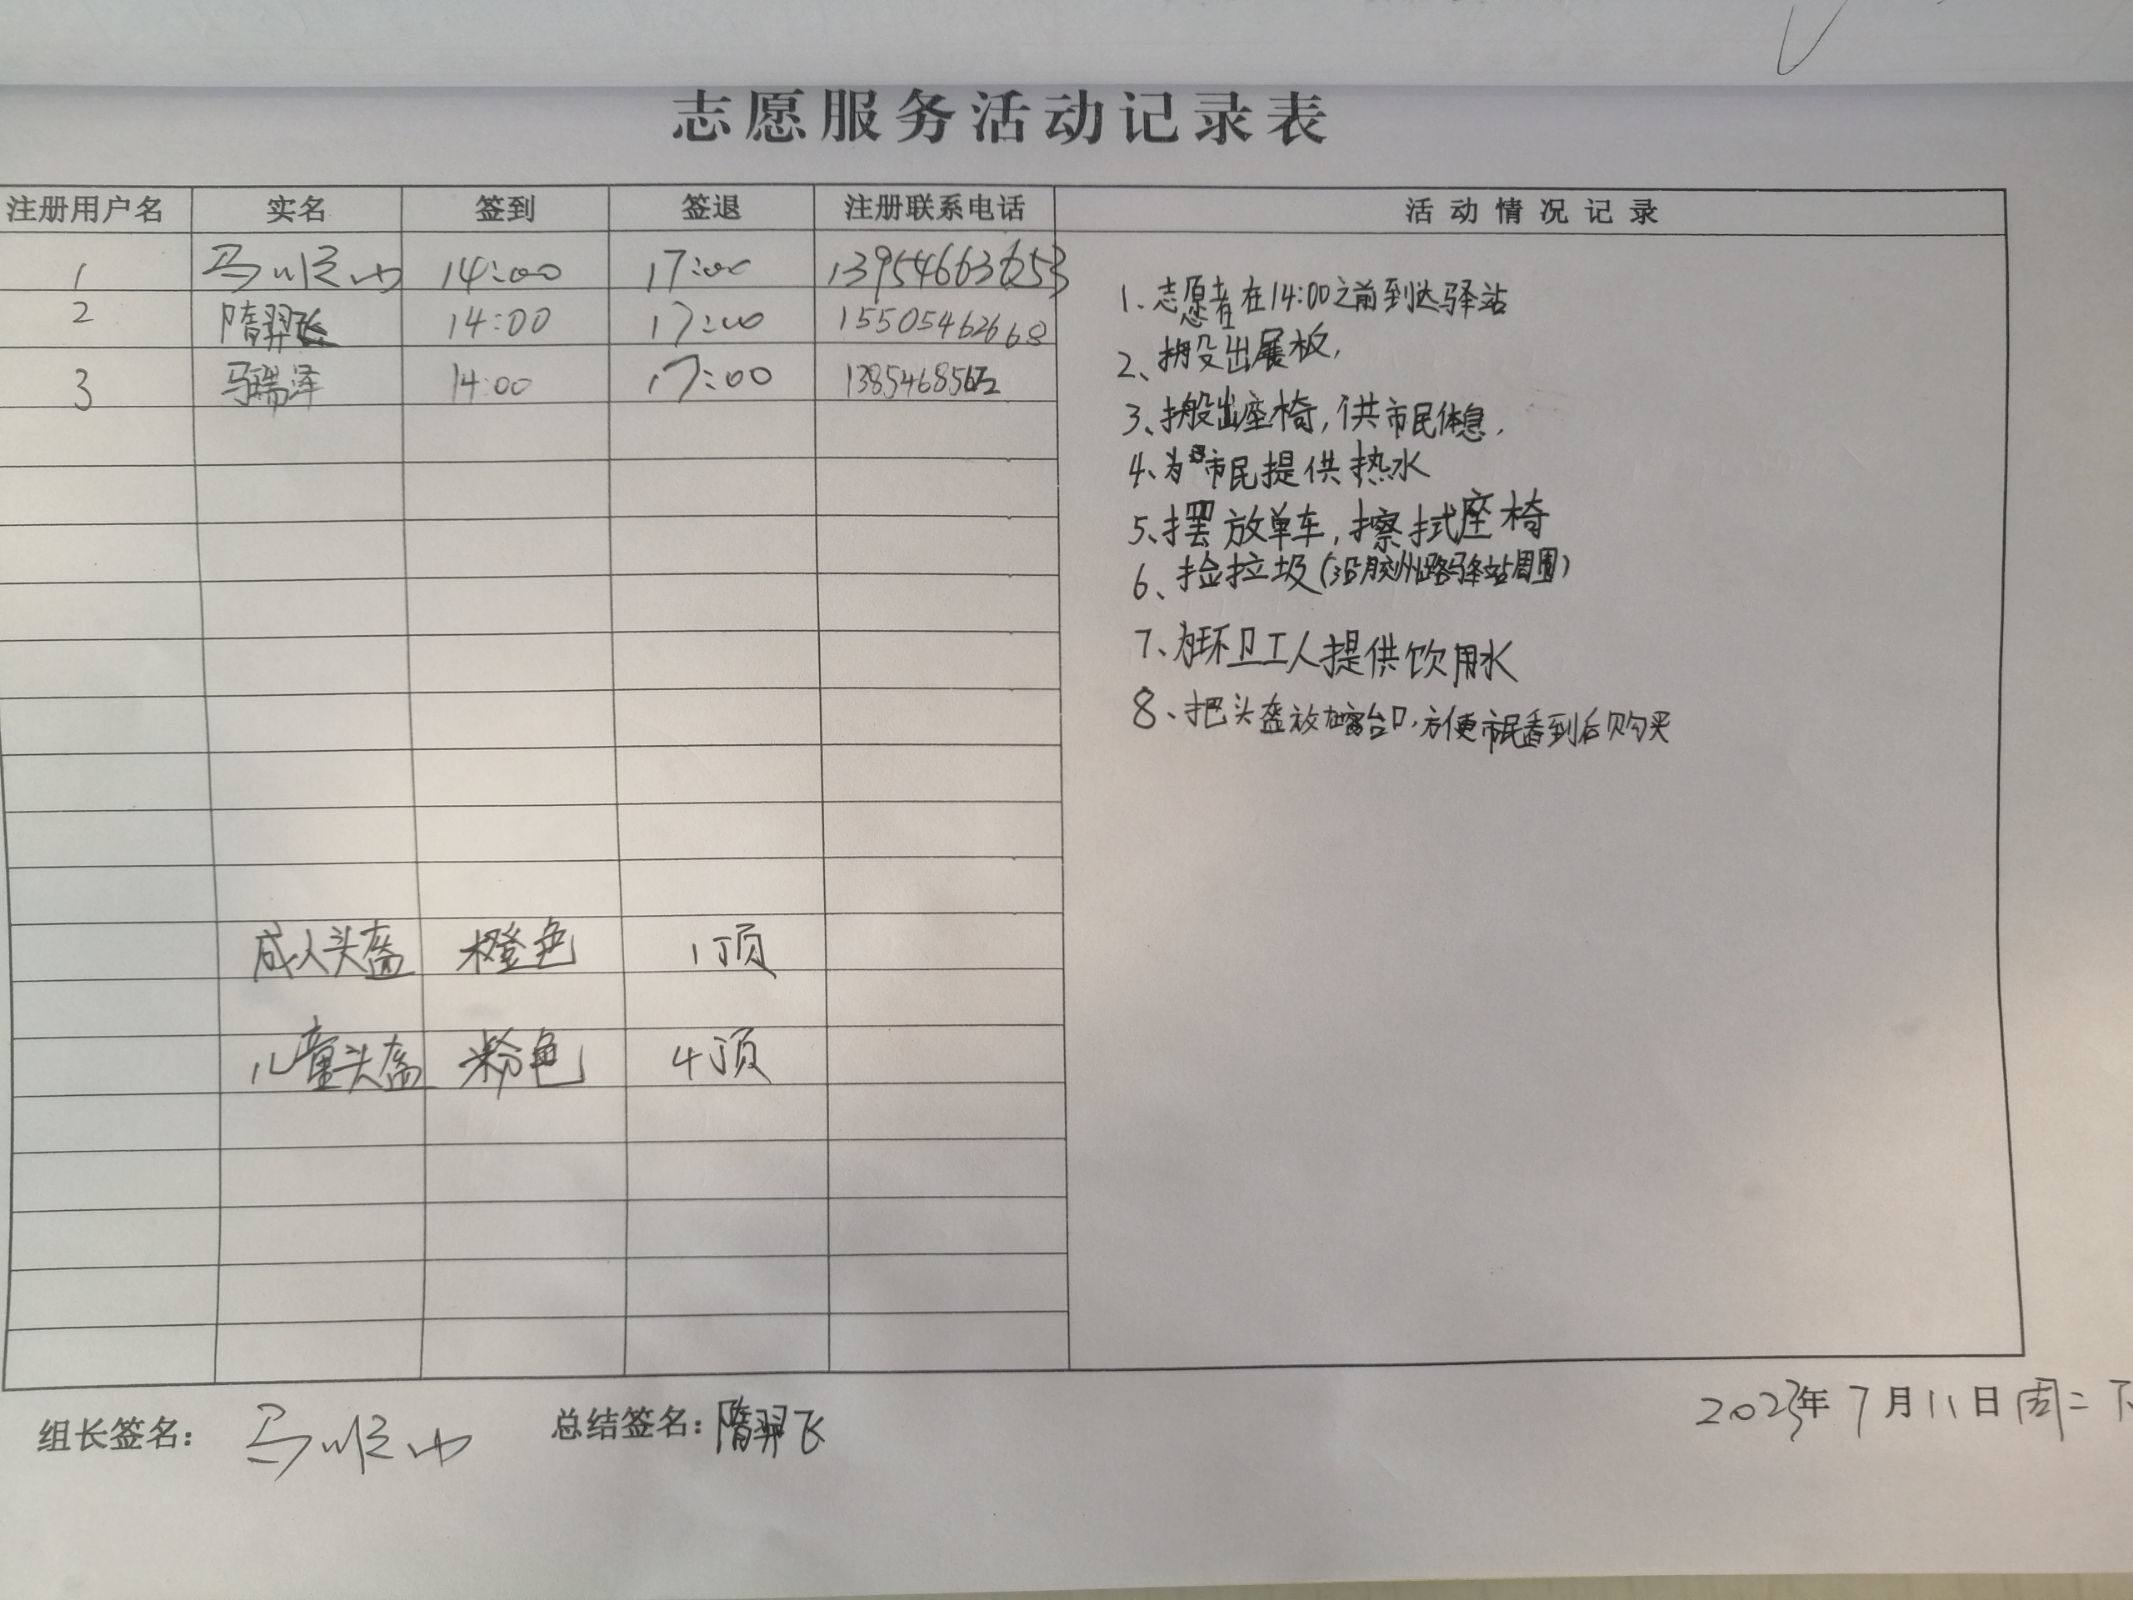 志愿服务活动记录表
注册用户名 实名 签到 签退 注册联系电话 活动情况记录
1 马顺山 14:00 17:00 13954663653
2 隋羿飞 14:00 17:00 15505462668
3 马瑞泽 14:00 17:00
1、志愿者在14:00之前到达驿站
2、搬出展板,
3、搬出座椅,供市民休息.
4、为市民提供热水
5、摆放单车,擦拭座椅
6、捡垃圾(沿胶州路驿站周围)
7、为环卫工人提供饮用水
8、把头盔放在窗台口,方便市民看到后购买
成人头盔 橙色 1顶
儿童头盔 粉色 4顶
组长签名: 马顺山 总结签名: 隋羿飞 2023年7月11日 周二 下